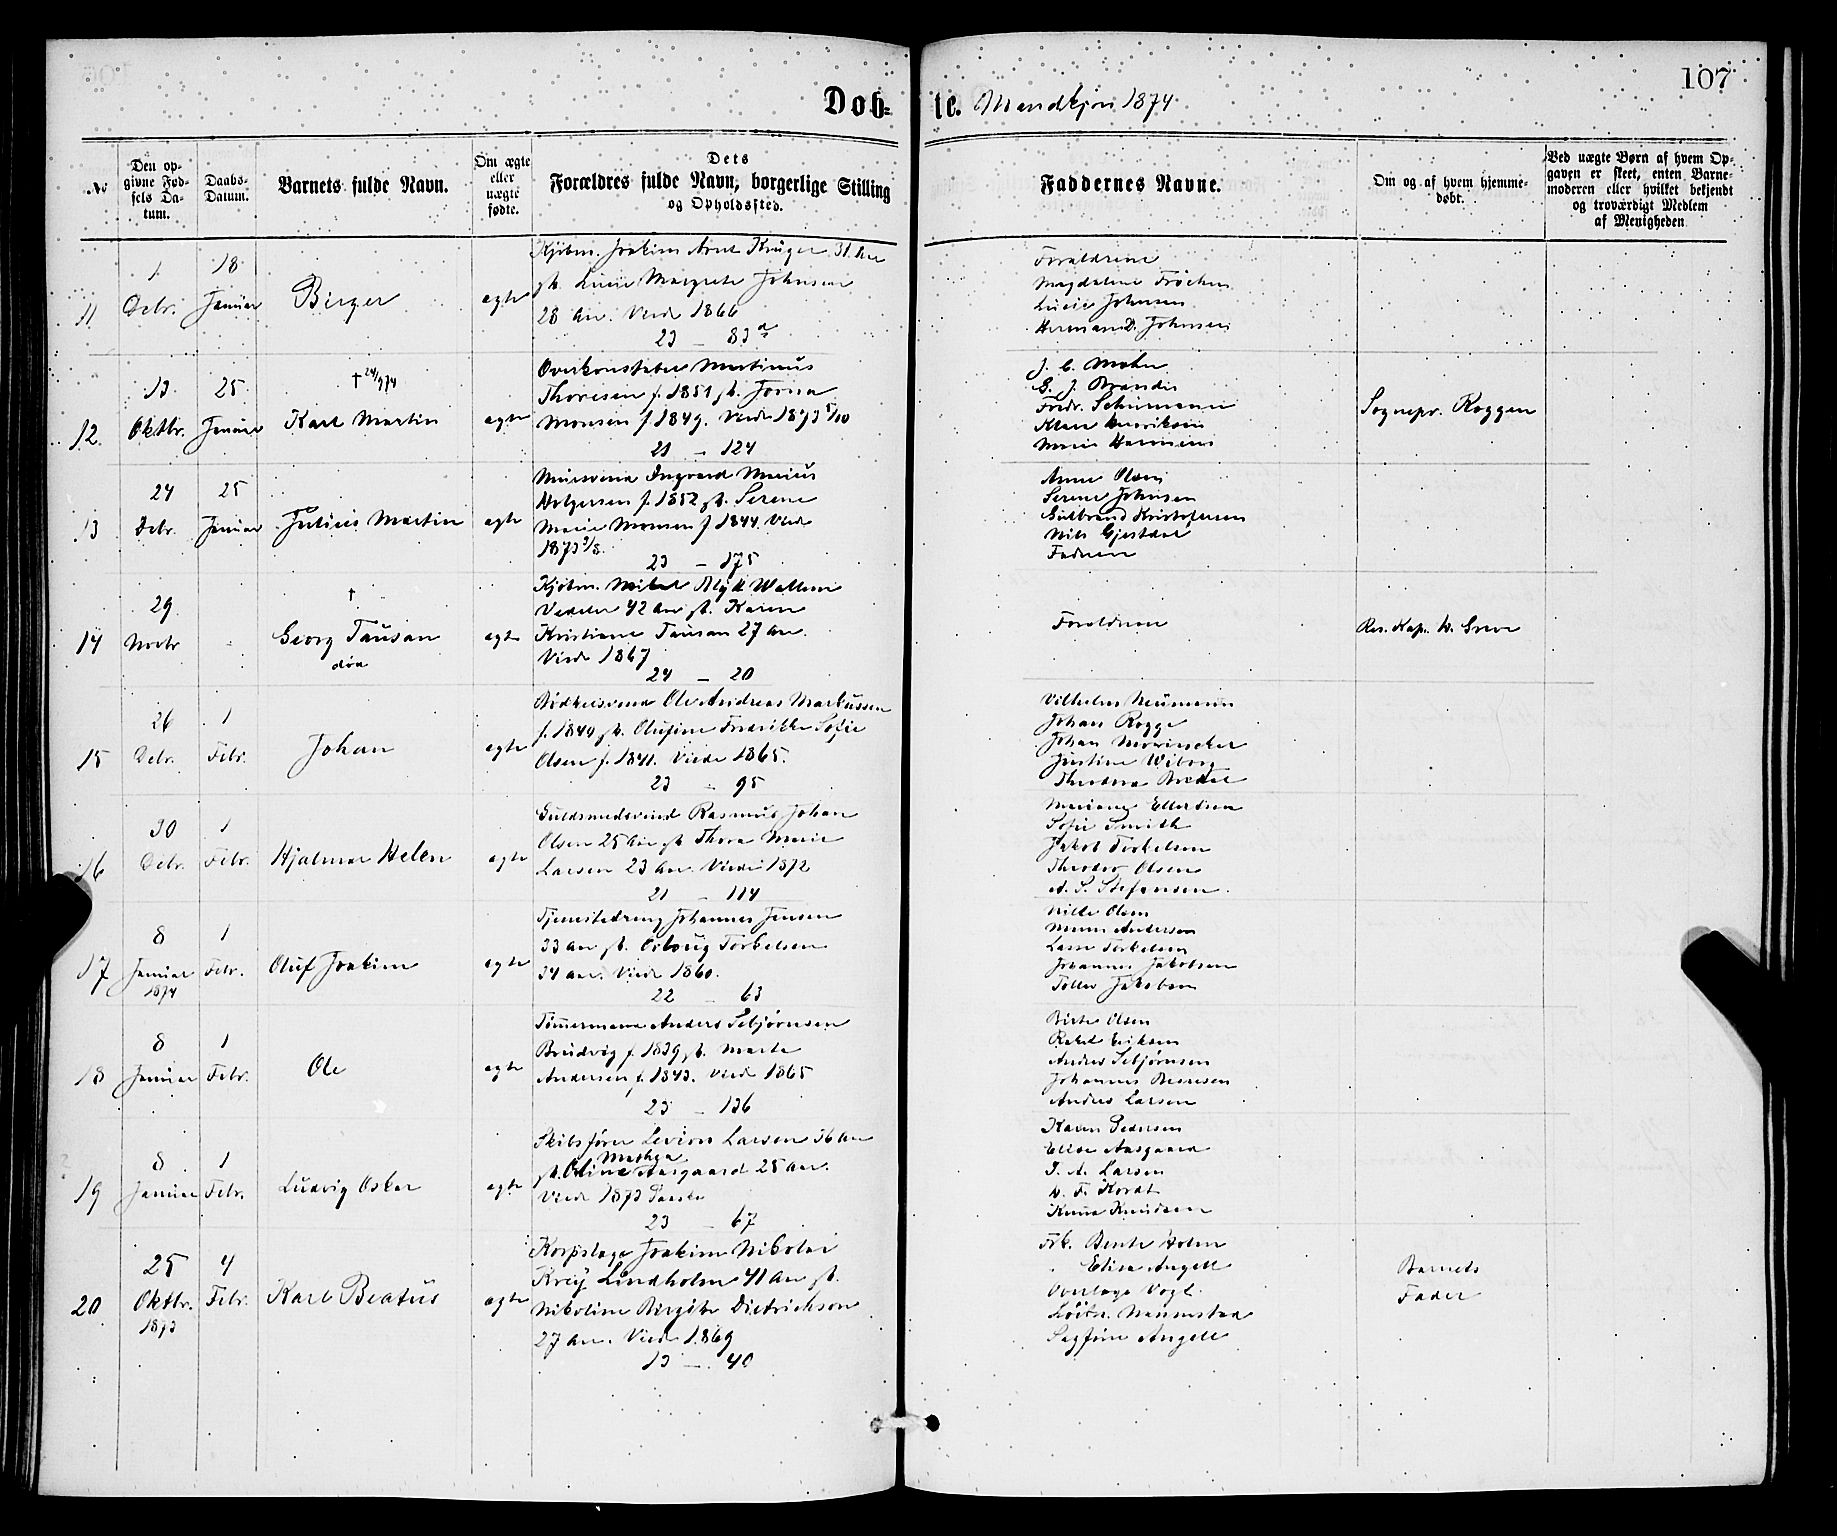 107
Døb-
te. Mandkjøn 1874
No
Den op-
givne Fød-
sels Da-
tum.
Daabs-
Datum.
Barnets fulde Navn.
Om ægte
eller
uægte
fødte.
Dets
Forældres fulde Navn, borgerlige Stilling
og Opholdssted.
Faddernes Navne.
Om og af hvem hjemme-
døbt.
Ved uægte Børn af hvem Op-
gaven er skeet, enten Barne-
moderen eller hvilket bekjendt
og troværdigt Medlem
af Menigheden
11
1
Debr.
18
Januar
Birger
ægte
Kjøbm. Joakim Arnt Krüger 31 Aar
Lucie Margrete Johnsen
28 Aar. Viede 1866
23 – 83
Forældrene
Magdalene Frøchen
Lucie Johnsen
Herman D. Johnsen
12
13
Oktbr.
25
Januar
† 24/1 74
Karl Martin
ægte
Overkonstabel Martinus
Thoresen f. 1851
Monsen f. 1849. Viede 1873 5/10
21 – 124
J. C. Mohn
G. J. Brandis
Fredr. Schumann
Klaus Henriksen
Sognepr. Roggen
13
24
Debr.
25
Januar
Julius Martin
ægte
Muresvend Ingvard Marius
Holgersen f. 1852 Serene
Marie Monsen f 1844. Viede
1873 3/8.
23 – 175
Anne Olsen
Serene Johnsen
Gulbrand Kristofersen
Nils Gjestdal
Faderen
14
29
Novbr
†
Georg Tausan
døa
ægte
Kjøbm. Wallem
Vedeler 42 Aar Karen
Kristiane Tausan 27 Aar.
Viede 1867
24 – 20
Forældrene
Res. Kap. W. Greve
15
26
Debr.
1
Febr.
Johan
ægte
Bødkersvend Ole Andreas Markussen
f. 1840 Olufine Fredrikke Sofie
Olsen f. 1841. Viede 1865.
23 – 95
Vilhelm Neumann
Johan Rogge
Johan Mowinckel
Justine Wiborg
Theodora
16
30
Debr.
1
Febr.
Hjalmar Helen
ægte
Guldsmedsvend Rasmus Johan
Olsen 25 Aar Thora Marie
Larsen 23 Aar. Viede 1872
21 – 114
Mariane Ellertsen
Sofie Smith
Jakob Torkelsen
Theodor Olsen
A. S. Stefansen.
17
8
Januar
1874
1
Febr.
Oluf Joakim
ægte
Tjenestedreng Johannes Jensen
33 Aar Torkelsen
34 Aar. Viede 1860.
22 – 63
Olsen
Andersen
Lasse Torkelsen
Johannes Jakobsen
Tollev Jakobsen
18
8
Januar
1
Febr.
Ole
ægte
Tømmermand Anders Sebjørnsen
Brudvig f. 1839 Marta
Andersen f. 1843. Viede 1865
23 – 136
Birte Olsen
Rakel Eriksen
Anders Sebjørnsen
Johannes
Anders Larsen
19
8
Januar
1
Febr.
Ludvig Oskar
ægte
Skibsfører Levion Larsen 36 Aar
Mathea
Oline Aasgaard 25 Aar.
Viede 1873
23 – 67
Karen Pedersen
Elise Aasgaard
T. A. Larsen
W. F. Kordt
Knud Knudsen
20
25
Oktbr.
1873
4
Febr.
Karl Beatus
ægte
Korpslæge Joakim Nikolai
Kreÿ Lindholm 41 Aar
Nikoline Birgitte Diedrichson
27 Aar. Viede 1869
13 – 40
Frk. Bente Holm
Elisa Angell
Overlæge Vogt
Angell
Barnets
Fader